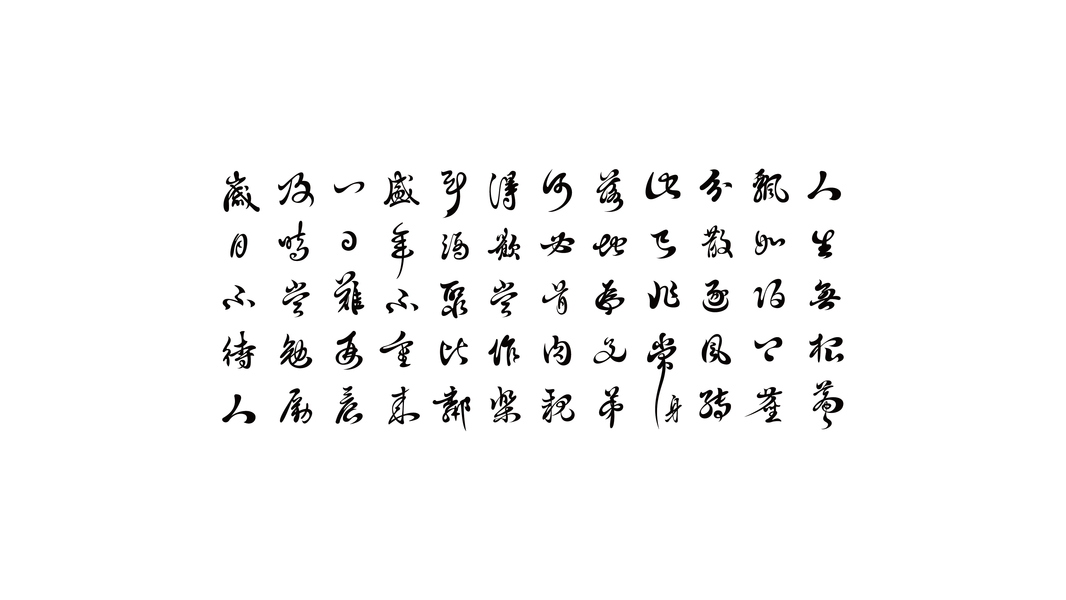 人生無根蒂
飄如陌上塵
分散逐風轉
此已非常身
落地為兄弟
何必骨肉親
得歡當作樂
斗酒聚比鄰
盛年不重來
一日難再晨
及時當勉勵
歲月不待人